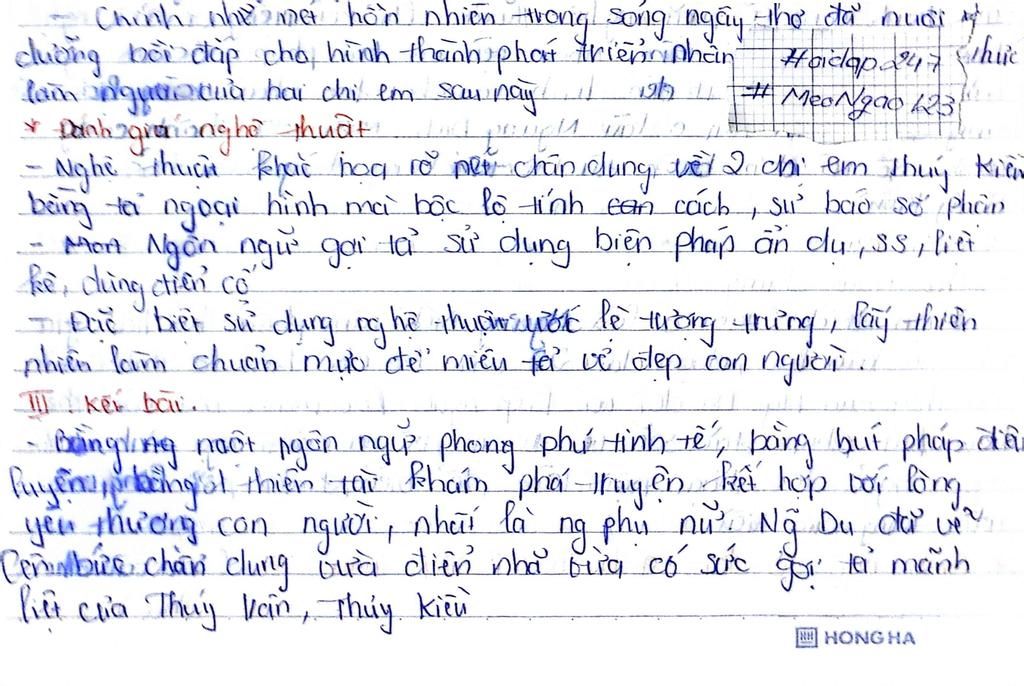 - Chính nhờ nét hồn nhiên trong sáng ngây thơ đã nuôi
dưỡng bồi đắp cho hình thành phát triển nhân thức
#Hoidap247
làm người của hai chị em sau này
#MeoNgao123
* Đánh giá nghệ thuật
- Nghệ thuật khắc hoạ rõ nét chân dung vẻ 2 chị em Thuý Kiều
bằng tả ngoại hình mà bộc lộ tính cách, sử báo số phận
- Ngôn ngữ gợi tả sử dụng biện pháp ẩn dụ, ss, liệt
kê, dùng điển cố
- Đặc biệt sử dụng nghệ thuật ước lệ tượng trưng, lấy thiên
nhiên làm chuẩn mực để miêu tả vẻ đẹp con người.
III. Kết bài.
- Bằng một ngôn ngữ phong phú tinh tế, bằng bút pháp điêu
luyện, bằng thiên tài khám phá truyện kết hợp với lòng
yêu thương con người, nhất là ng phụ nữ. Ng Du đã vẽ
lên bức chân dung vừa điển nhã vừa có sức gợi tả mãnh
liệt của Thúy Vân, Thúy Kiều
HONG HA